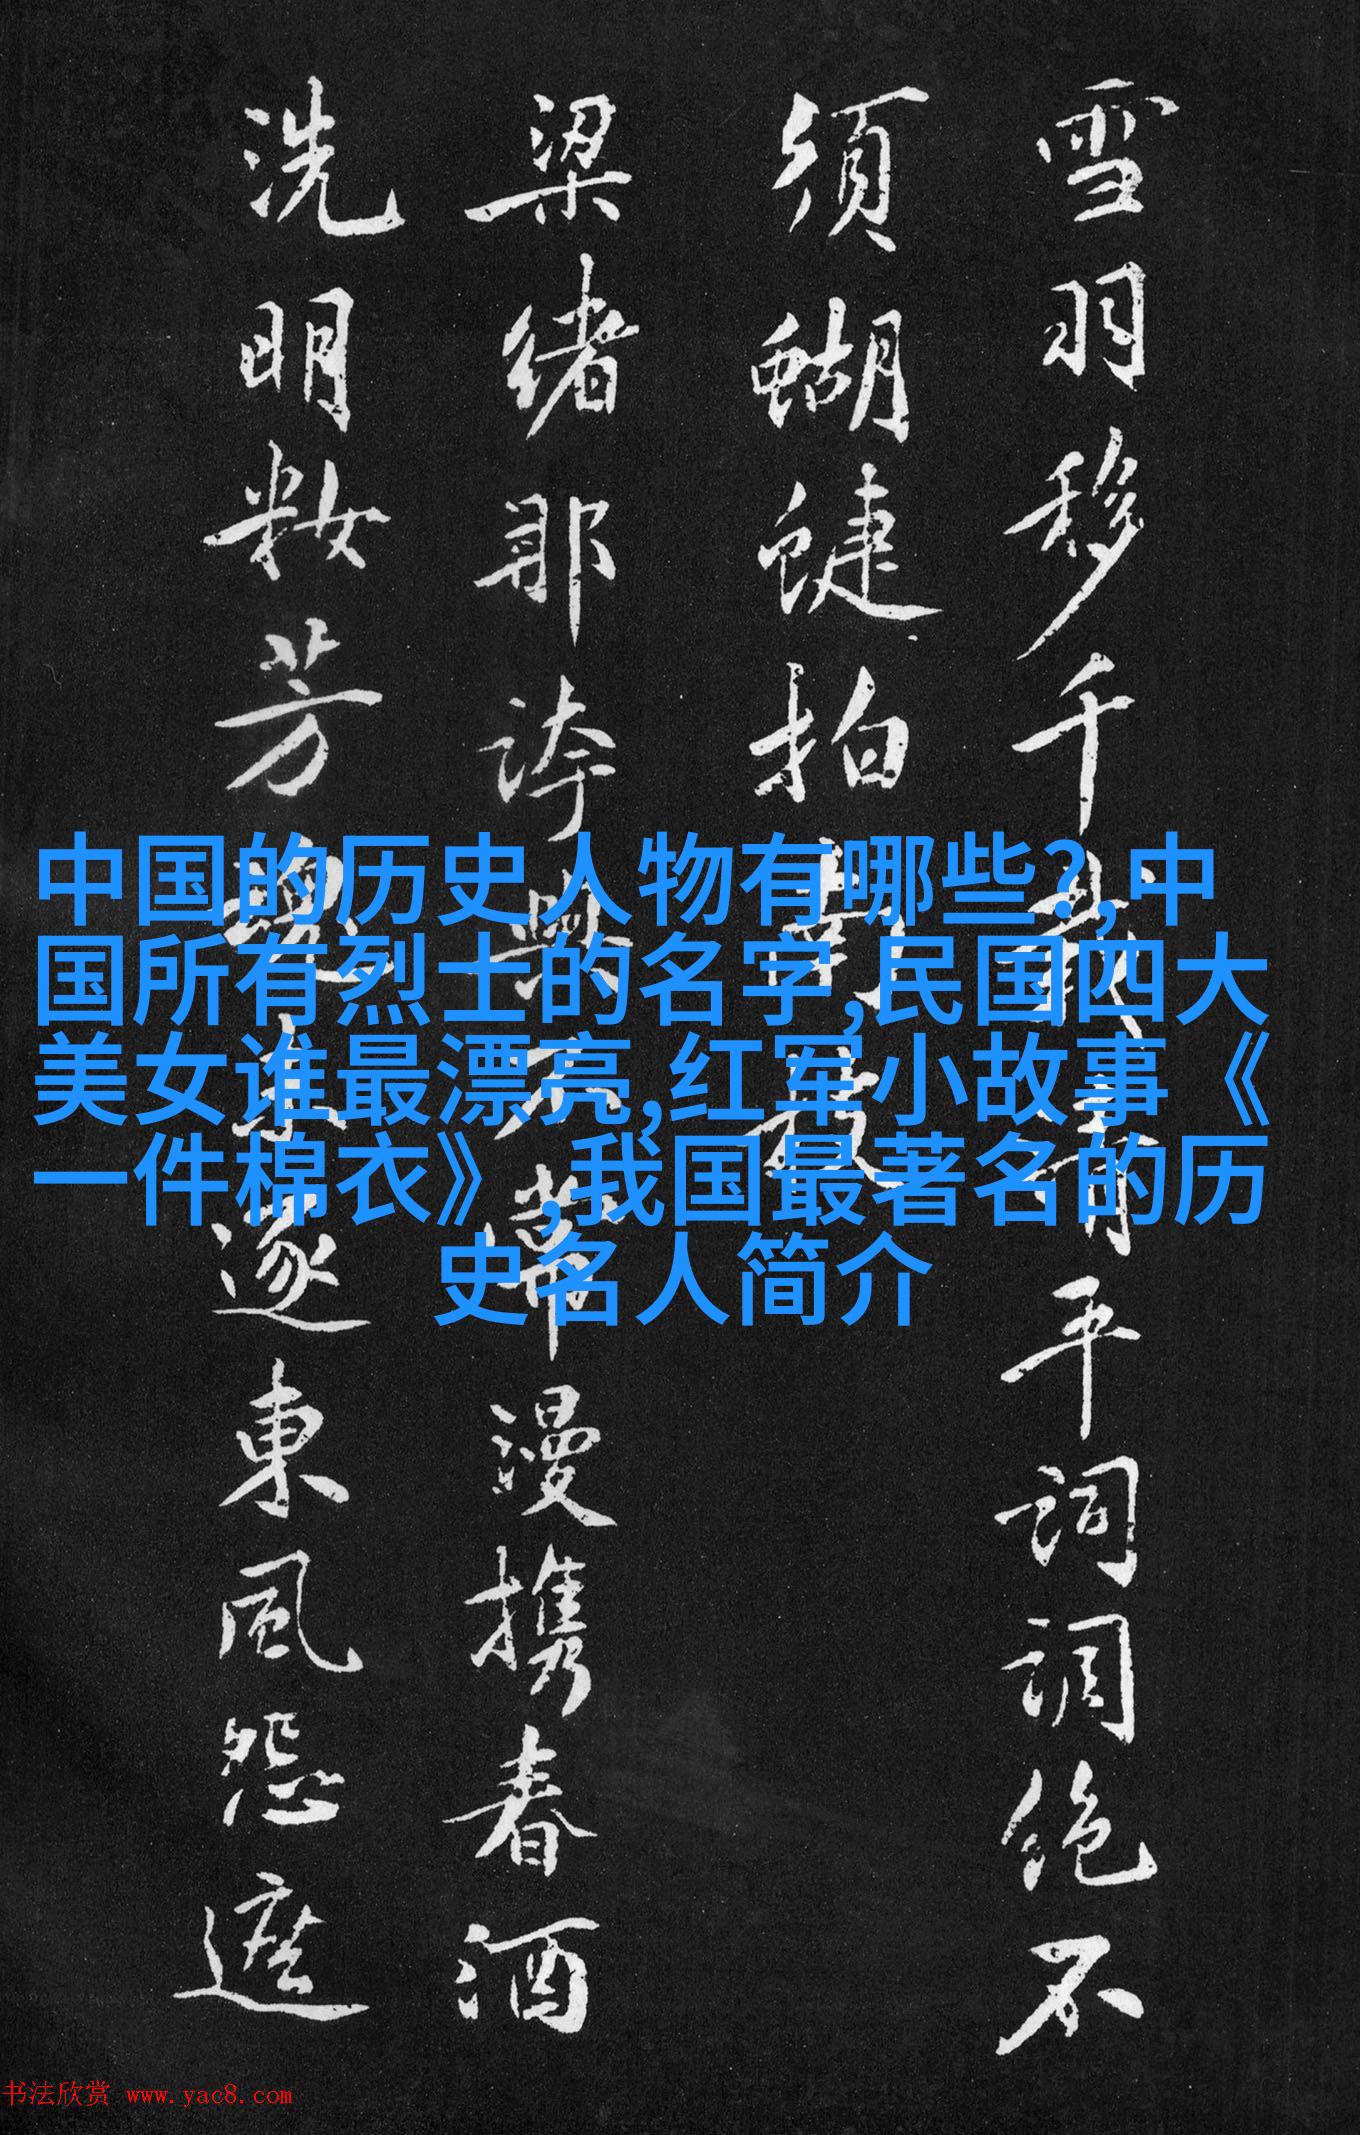 雪羽移千平詞調絶不
須蝴蝶拍
梁緒那誇與不常漫携春酒
洗明籹芳魂逐東風怨遮
中国的历史人物有哪些?,中
国所有烈士的名字,民国四大
美女谁最漂亮,红军小故事《
一件棉衣》,我国最著名的历
史名人简介
书法欣赏 www.yac8.com